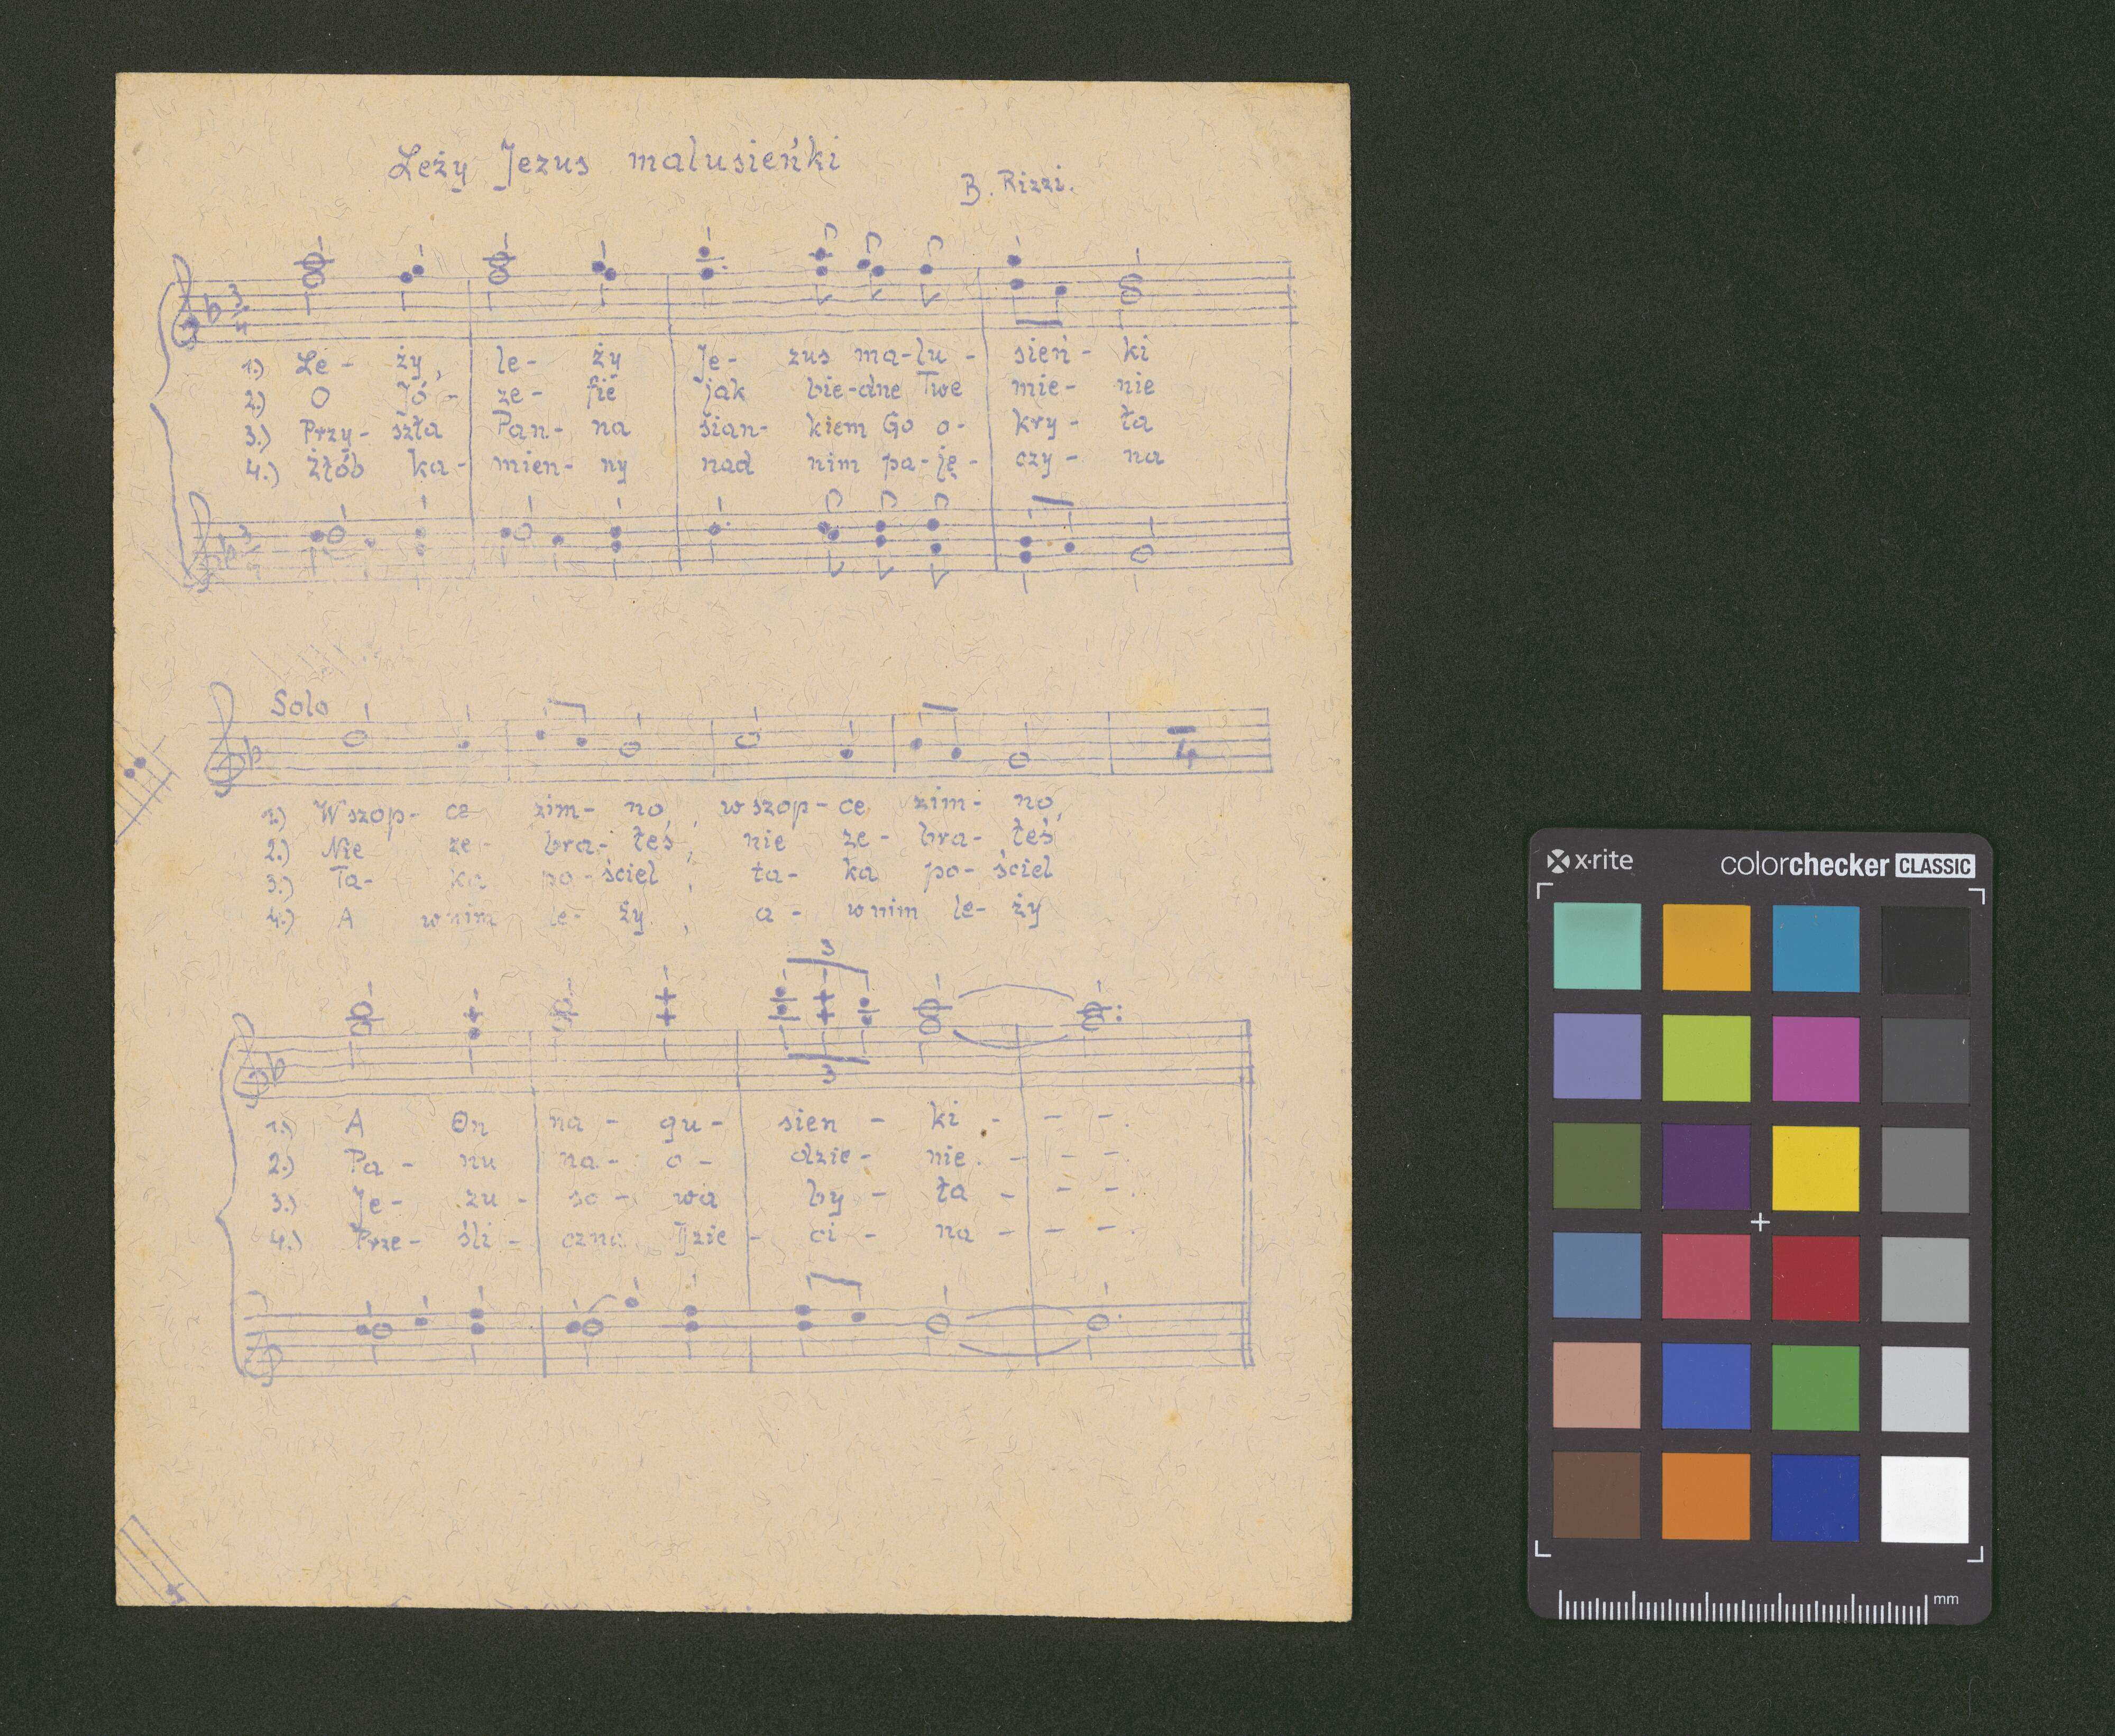 Leży Jezus malusieńki
B. Rizzi.
3 4
1.) Le - ży, le - ży Je - zus ma - lu - sień - ki
2.) O Jó - ze - fie jak bie - dne Twe mie - nie
3.) Przy - szła Pan - na sian - kiem Go o - kry - ła
4.) Żłób ka - mien - ny nad nim pa - ję - czy - na
3 4
Solo
4
1.) W szop - ce zim - no, w szop - ce zim - no,
2.) Nie ze - bra - łeś, nie ze - bra - łeś
3.) Ta - ka po - ściel, ta - ka po - ściel
4.) A w nim le - ży, a - w nim le - ży
3
3
1.) A On na - gu - sien - ki - - -.
2.) Pa - nu na - o - dzie - nie. - - -.
3.) Je - zu - so - wa by - ła - - -.
4.) Prze - śli - czna Dzie - ci - na - - -.
x-rite colorchecker CLASSIC
mm